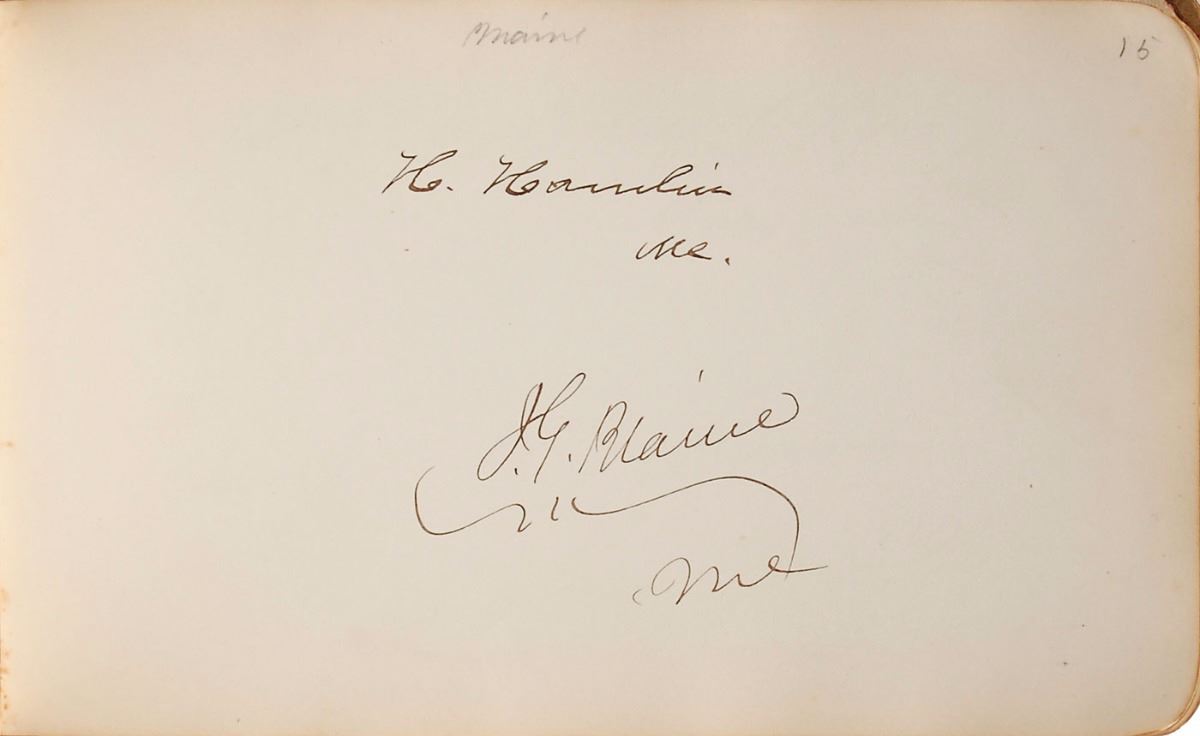 Maine
15
H. Hamlin
Me.
J. G. Blaine
Me